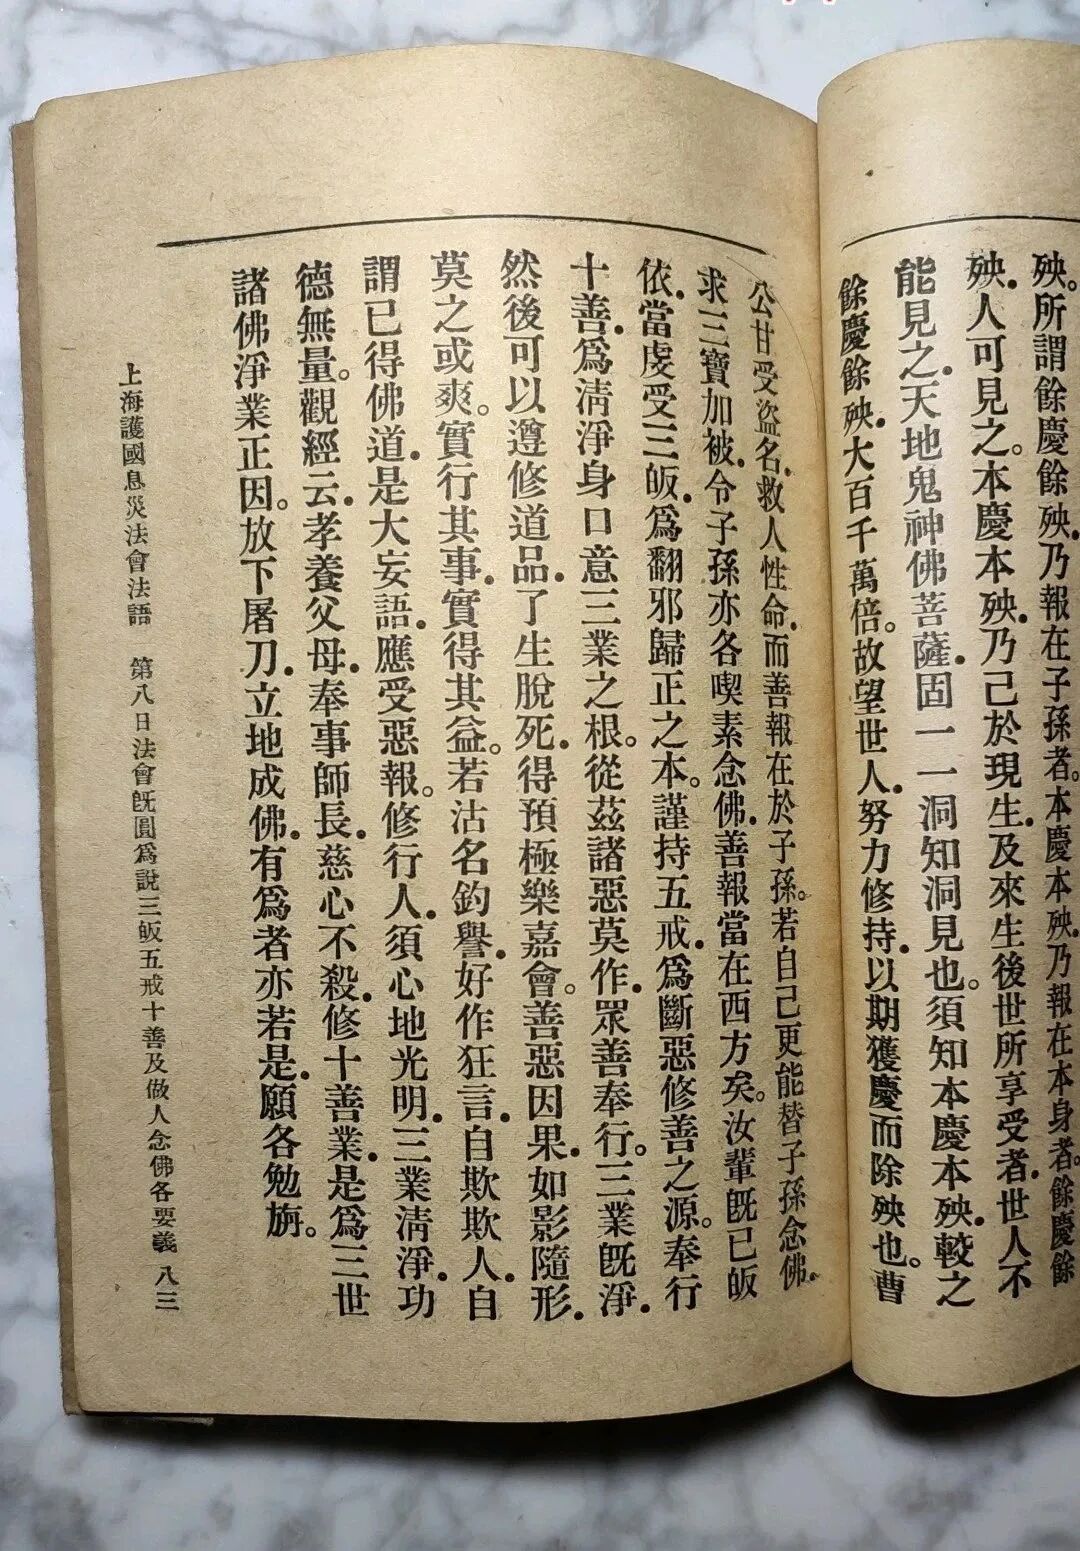 殃。所謂餘慶餘殃。乃報在子孫者。本慶本殃。乃報在本身者。餘慶餘
殃。人可見之。本慶本殃。乃己於現生。及來生後世所享受者。世人不
能見之。天地鬼神佛菩薩。固一一洞知洞見也。須知本慶本殃。較之
餘慶餘殃。大百千萬倍。故望世人。努力修持。以期獲慶而除殃也。曹
公甘受盜名。救人性命。而善報在於子孫。若自己更能替子孫念佛。
求三寶加被。令子孫亦各喫素念佛。善報當在西方矣。汝輩既已皈
依。當虔受三皈。爲翻邪歸正之本。謹持五戒。爲斷惡修善之源。奉行
十善。爲淸淨身口意三業之根。從茲諸惡莫作。眾善奉行。三業既淨。
然後可以遵修道品。了生脫死。得預極樂嘉會。善惡因果。如影隨形。
莫之或爽。實行其事。實得其益。若沽名釣譽。好作狂言。自欺欺人。自
謂已得佛道。是大妄語。應受惡報。修行人。須心地光明。三業淸淨。功
德無量。觀經云。孝養父母。奉事師長。慈心不殺。修十善業。是爲三世
諸佛淨業正因。放下屠刀。立地成佛。有爲者亦若是。願各勉旃。
上海護國息災法會法語 第八日法會既圓爲說三皈五戒十善及做人念佛各要義 八三